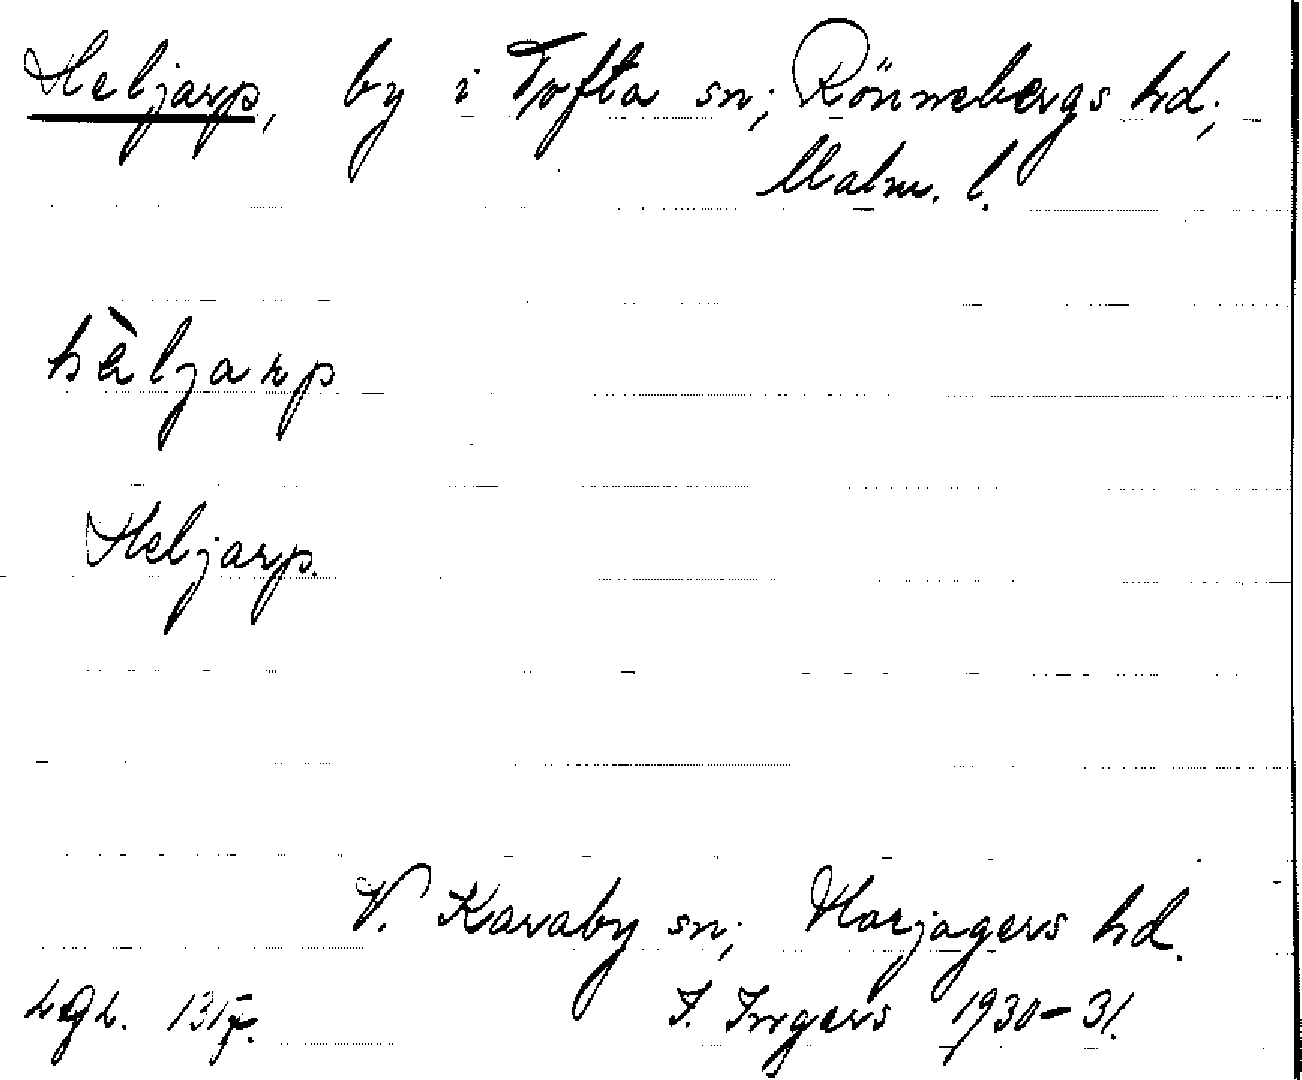 Heljarp, by i Tofta sn; Rönnebergs hd;
Malm. l.
hèljarp
Heljarp.
V. Karaby sn; Harjagers hd.
I. Ingers 1930-31.